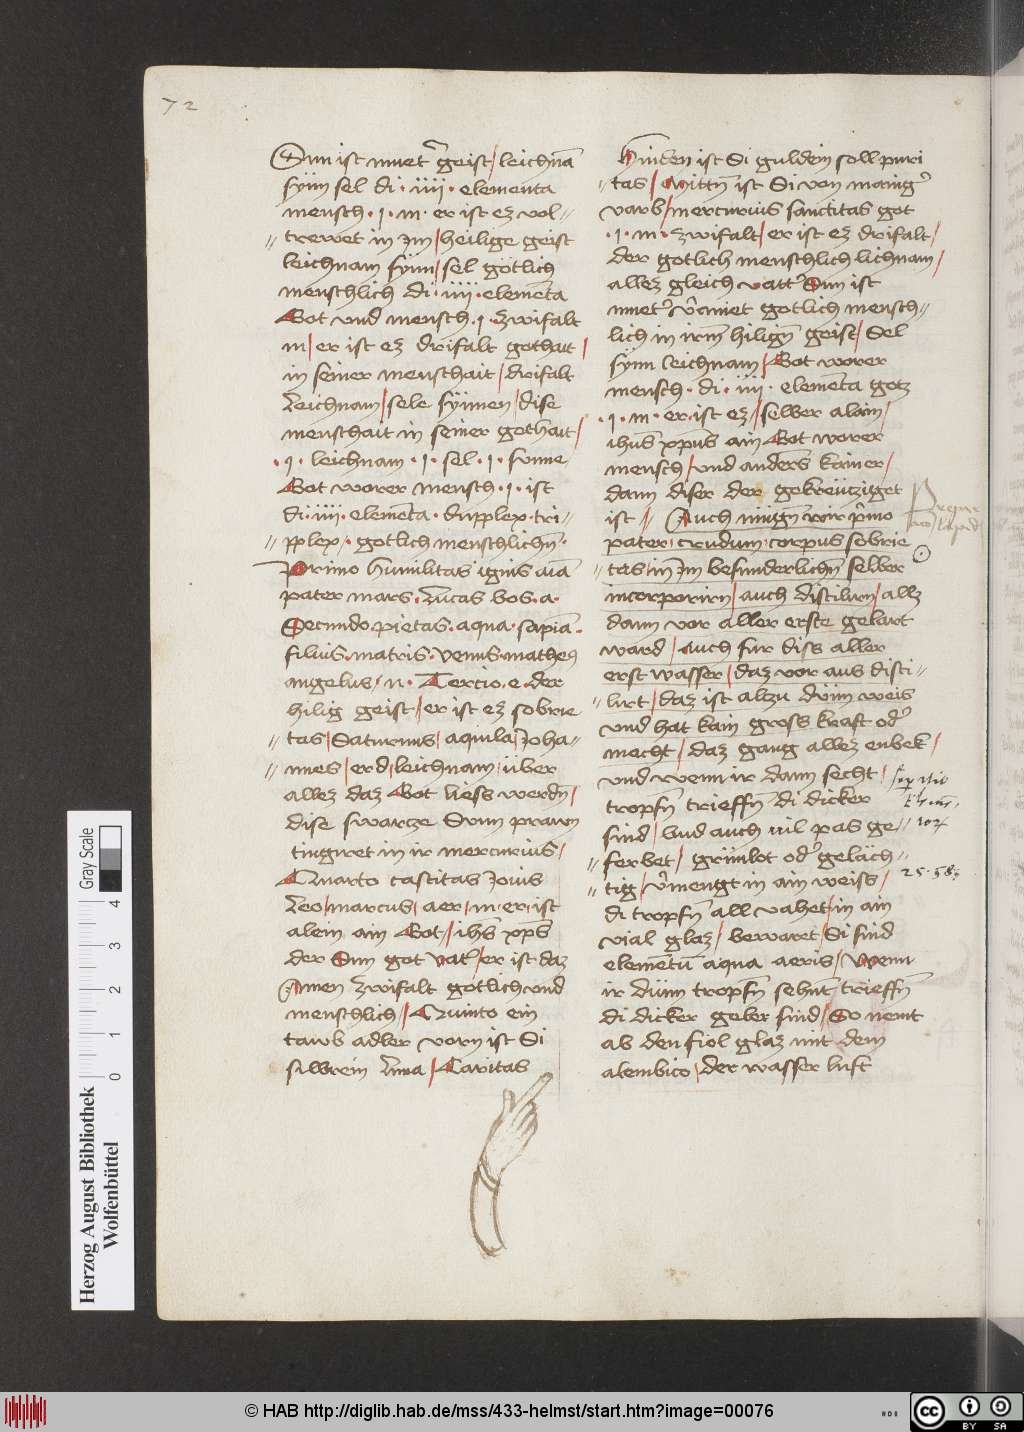 72
Sun ist muet' geist / leichnā
synn sel di · iiii · elementa
mensch · I · m · er ist ez vol-
trewet in Jm / heilige geist
leichnam synn / sel götlich
menschlich di · iiii · elemēta
Got vnd mensch · I · zwifalt
m / er ist ez drifalt gothait /
in seiner menschait / drifalt
Leichnam / sele synnen / dise
menschait in seiner gothait /
· I · leichnam · I · sel · I · sunne
Got worer mensch · I · ist
di · iiii · elemēta · dupplex · tri-
pplex · gotlich menschlichn̄ ·
Primo humilitas ignis aīa
pater mars · Lucas bos · a ·
Secundo pietas · aqua · sapiā ·
filius · matris · venus · matheus
angelus / n · Tercio · e · der
hilig geist / er ist ez sobrie
tas / Saturnus / aquila / Joha-
nnes / erd / leichnam / über
allez daz Got liess werdn̄ /
dise swartze Sunn prawn
tingiret in ir mercurius /
Quarto castitas Jovis
Leo / marcus / aer / m · er · ist
alein ain Got / ih̄s xp̄s
der Sun got vat' / er ist daz
Amen zwifalt gotlich vnd
menschlich / Quinto ein
tawb adler vorn ist Si
silbrein Luna / Caritas
Hinden ist Si guldein soll puri
tas / mittn̄ ist Si von maing'
varb / mercurius sanctitas got
· I · m · zwifalt / er ist ez drifalt /
der gotlich menschlich lichnam /
allez gleich vatt' Sun ist
muet' v'ainet gotlich mensch-
lich in irm̄ hilign̄ geist / Sel
synn leichnam / Got worer
mensch · di · iiii · elemēta gotz
· I · m · er · ist ez / selber alain /
ih̄us xp̄us ain Got worer
mensch / vnd anders kainer /
dann diser der gekreütziget
ist / Auch mügn̄ wir p'mo
pater · crudum · corpus sobrie
tas / in Jm besunderlichn̄ selber
incorporirn / auch distilirn / allz
dann vor aller erste gelart
ward / auch fur diss aller
erst wasser / daz vor aus disti-
lirt / daz ist altzu dünn weis
vnd hat kain gross kraft od'
mecht / daz gang allez enbek /
vnd wenn ir dann secht /
tropfn̄ trieffn̄ di dicker
sind / vnd auch vil pas ge-
ferbet / grünlot od' geläch-
tig / v'mengt in ain weiss /
di tropfn̄ all vahet / in ain
vial glaz / bewaret / Si sind
elemētū aqua aeris / Wenn
ir dünn tropfn̄ sehnt trieffn̄
di dicker gelber sind / So nemt
ab den fiol glaz mit dem
alembico / der wasser luft
25 · 58
Herzog August Bibliothek
Wolfenbüttel
Gray Scale
0 1 2 3 4
© HAB http://diglib.hab.de/mss/433-helmst/start.htm?image=00076
cc
BY SA